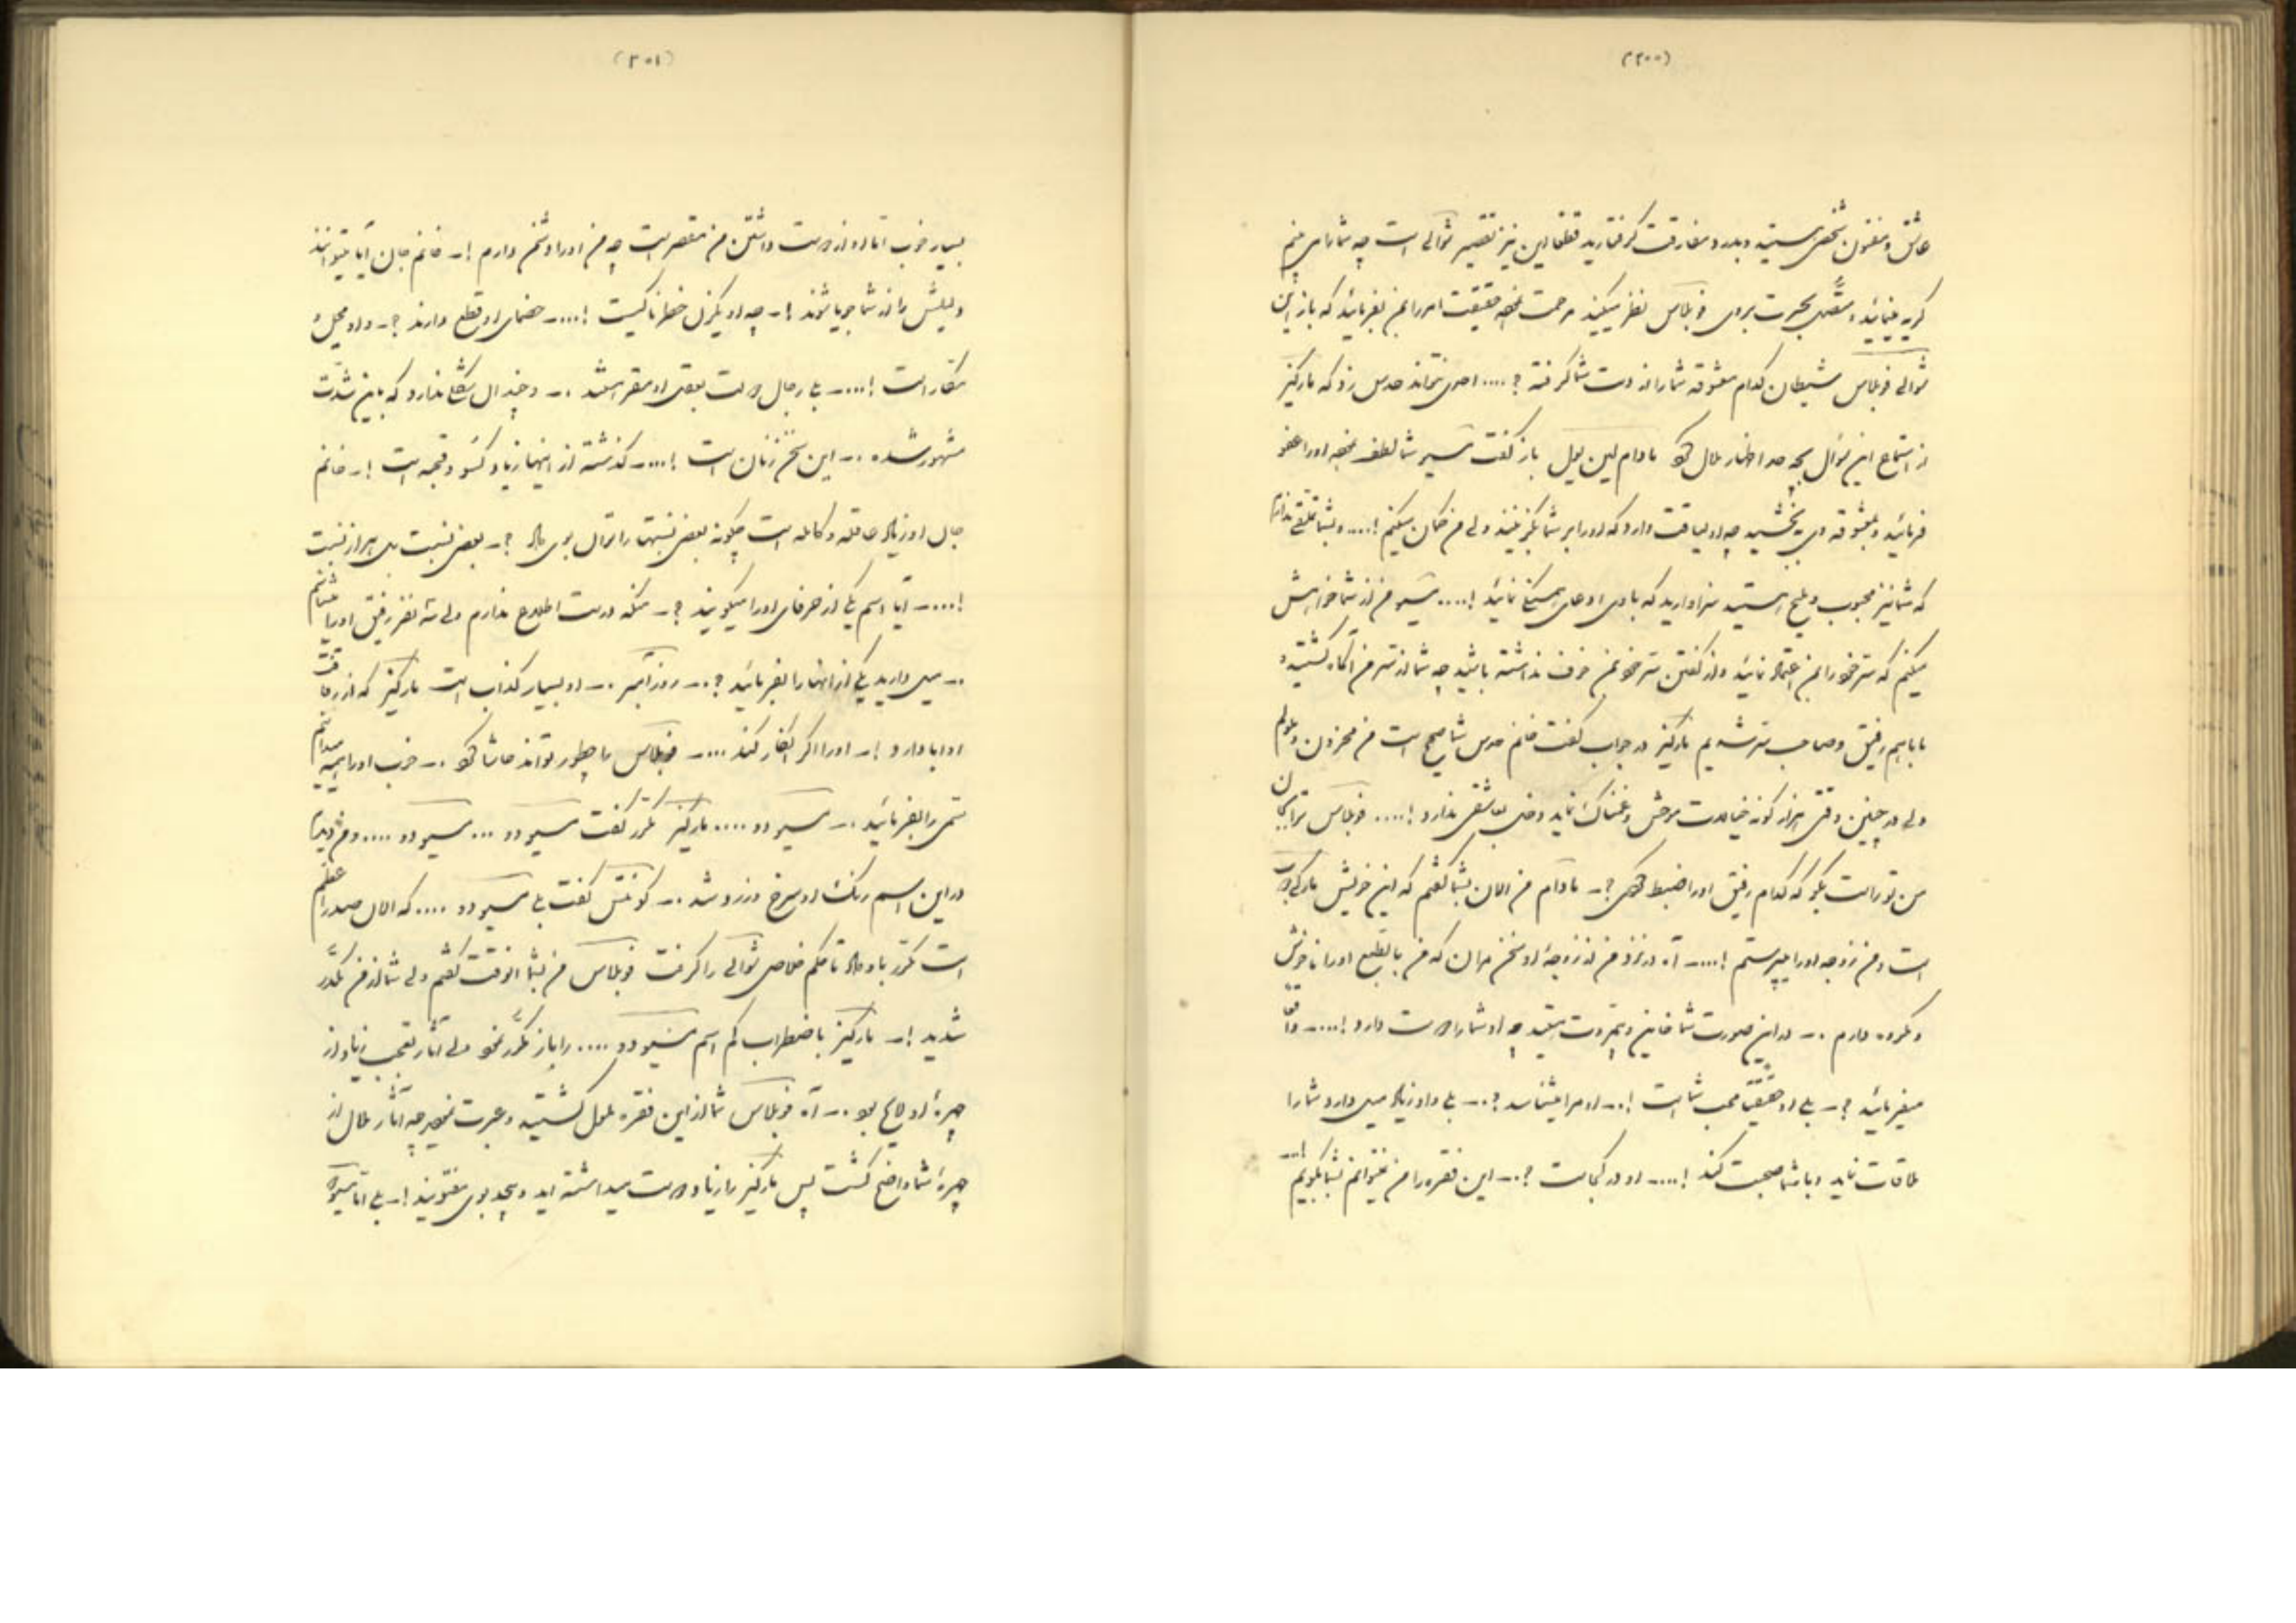 (۲۰۰)
عاشق و مفتون شخصی هستید و بدرد مفارقت گرفتارید قطعا این نیز تقصیر شوالی است چه شما را می بینم
گریه مینمائید و متصل بحیرت بروی فوبلاس نظر میکنید مرحمت نموده حقیقت امر را بمن بفرمائید که باز این
شوالی فوبلاس شیطان کدام معشوقه شما را از دست شما گرفته ؟ .... احدی نتواند حدس زد که مارکیز
از استماع این سؤال بچه حد اظهار ملال نمود مادام لین یول باز گفت مسیو شما لطف نموده او را عفو
فرمائید و بمعشوقه وی ببخشید چه او لیاقت دارد که او را بر شما بگزینند ولی من گمان میکنم !....
که شما نیز محبوب و ملیح هستید سزاوارید که با وی ادعای همسنگی نمائید !.... مسیو من از شما خواهش
میکنم که سر خود را بمن اعتماد نمائید و از گفتن سر خود بمن خوف نداشته باشید چه شما از سر من آگاه گشتید و
ما با هم رفیق و صاحب سر شدیم مارکیز در جواب گفت خانم حدس شما صحیح است من محزون و ملولم
ولی در چنین وقتی هزار گونه خیالات موحش و غمناک نماید دخلی بعاشقی ندارد !.... فوبلاس
من تو راست بگو که کدام رفیق او را ضبط نمودی ؟ـ مادام من الان بشما گفتم که این خویش مارکی
است و من زوجه او را میپرستم !....ـ آه در نزد من از زوجه او سخن مران که من بالطبع او را ناخوش
و مکروه دارم .ـ در این صورت شما خاین و بیمروت هستید چه او شما را دوست دارد !....ـ واقعا
میفرمائید ؟ـ بلی او حقیقتا محب شما است !.ـ او مرا میشناسد ؟.ـ بلی و او زیاد میل دارد شما را
ملاقات نماید و با شما صحبت کند !....ـ او در کجاست ؟.ـ این فقره را من نمیتوانم بشما بگویم !..ـ
(۲۰۱)
بسیار خوب اما او از دوست داشتن من مقصر است چه من او را دشمن دارم !ـ خانم جان آیا میتوانند
دلیلش را از شما جویا شوند !ـ چه او یکزن خطرناکیست !....ـ خصمای او قطع دارند ؟ـ و او محیل و
مکار است !....ـ بلی رجال دولت بعقل او مقر هستند .ـ و چندان شکلی ندارد که باین شدت
مشهور شده .ـ این سخن زنان است !....ـ گذشته از اینها زیاد و قحبه است !ـ خانم
جان او زیاد عاقله و کامله است چگونه بعضی نسبتها را توان بوی داد ؟ـ بعضی نسبت بلی هزار نسبت
!....ـ آیا اسم یکی از حرفای او را میگویند ؟ـ منکه درست اطلاع ندارم ولی سه نفر رفیق او را میشناسم
.ـ میل دارید یکی از آنها را بفرمائید ؟.ـ روزامبر .ـ او بسیار کذاب است مارکیز که از رفاقت
او ابا دارد !ـ او را اگر انکار کند ....ـ فوبلاس را چطور تواند حاشا نمود .ـ خوب او را
سمی را بفرمائید .ـ مسیو دو .... مارکیز مکرر گفت مسیو دو ... مسیو دو ....
در این اسم رنک او سرخ و زرد شد .ـ کونتس گفت بلی مسیو دو .... که الان صدر اعظم
است مکرر باو داد تا حکم خلاصی شوالی را گرفت فوبلاس من بشما آنوقت گفتم ولی شما از من مکدر
شدید !ـ مارکیز باضطراب کم اسم مسیو دو .... را باز مکرر نمود ولی آثار تعجب زیاد از
چهرهٔ او لایح بود .ـ آه فوبلاس شما از این فقره ملول گشتید و عبرت نمودید چه آثار ملال از
چهرهٔ شما واضح گشت پس مارکیز را زیاد دوست میداشته اید و بیحد بوی مفتونید !ـ بلی اما